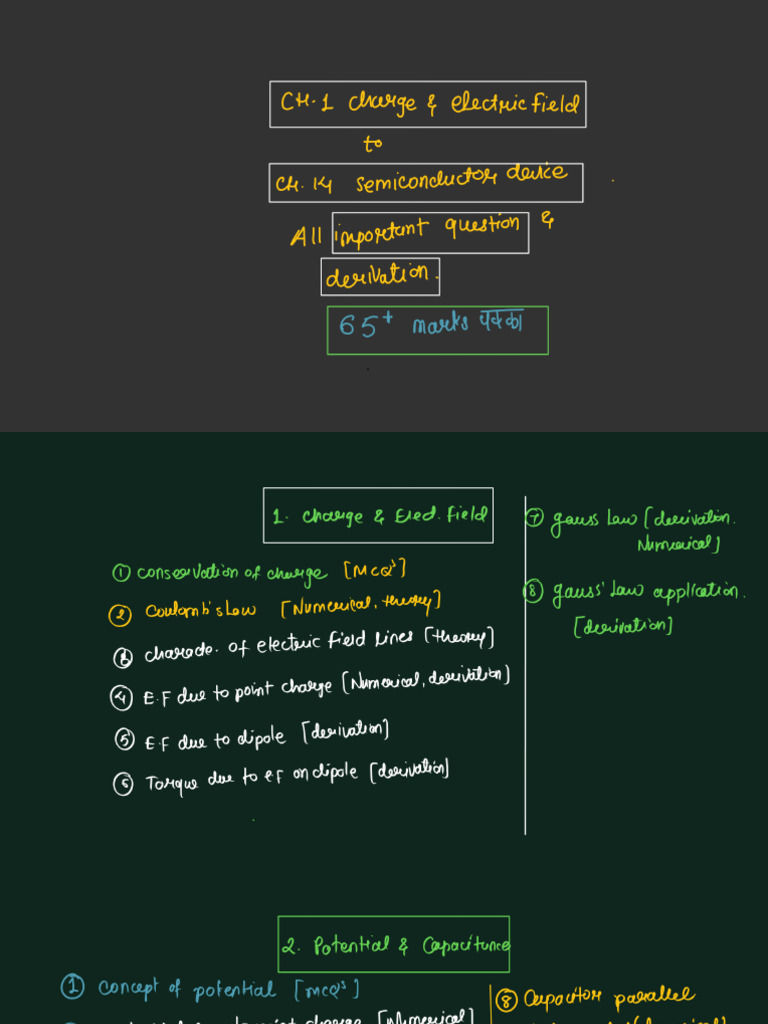 CH.1 charge & electric field
to
CH.14 semiconductor device
All important question &
derivation.
65+ marks पक्का
1. Charge & Elec. field
① conservation of charge [MCQ's]
② Coulomb's Law [Numerical, theory]
③ characte. of electric field lines [theory]
④ E.F due to point charge [Numerical, derivation]
⑤ E.F due to dipole [derivation]
⑤ Torque due to EF on dipole [derivation]
⑦ gauss Law [derivation.
Numerical]
⑧ gauss' Law application.
[derivation]
2. Potential & Capacitance
① concept of potential [MCQ's]
point charge [Numerical]
⑧ Capacitor parallel